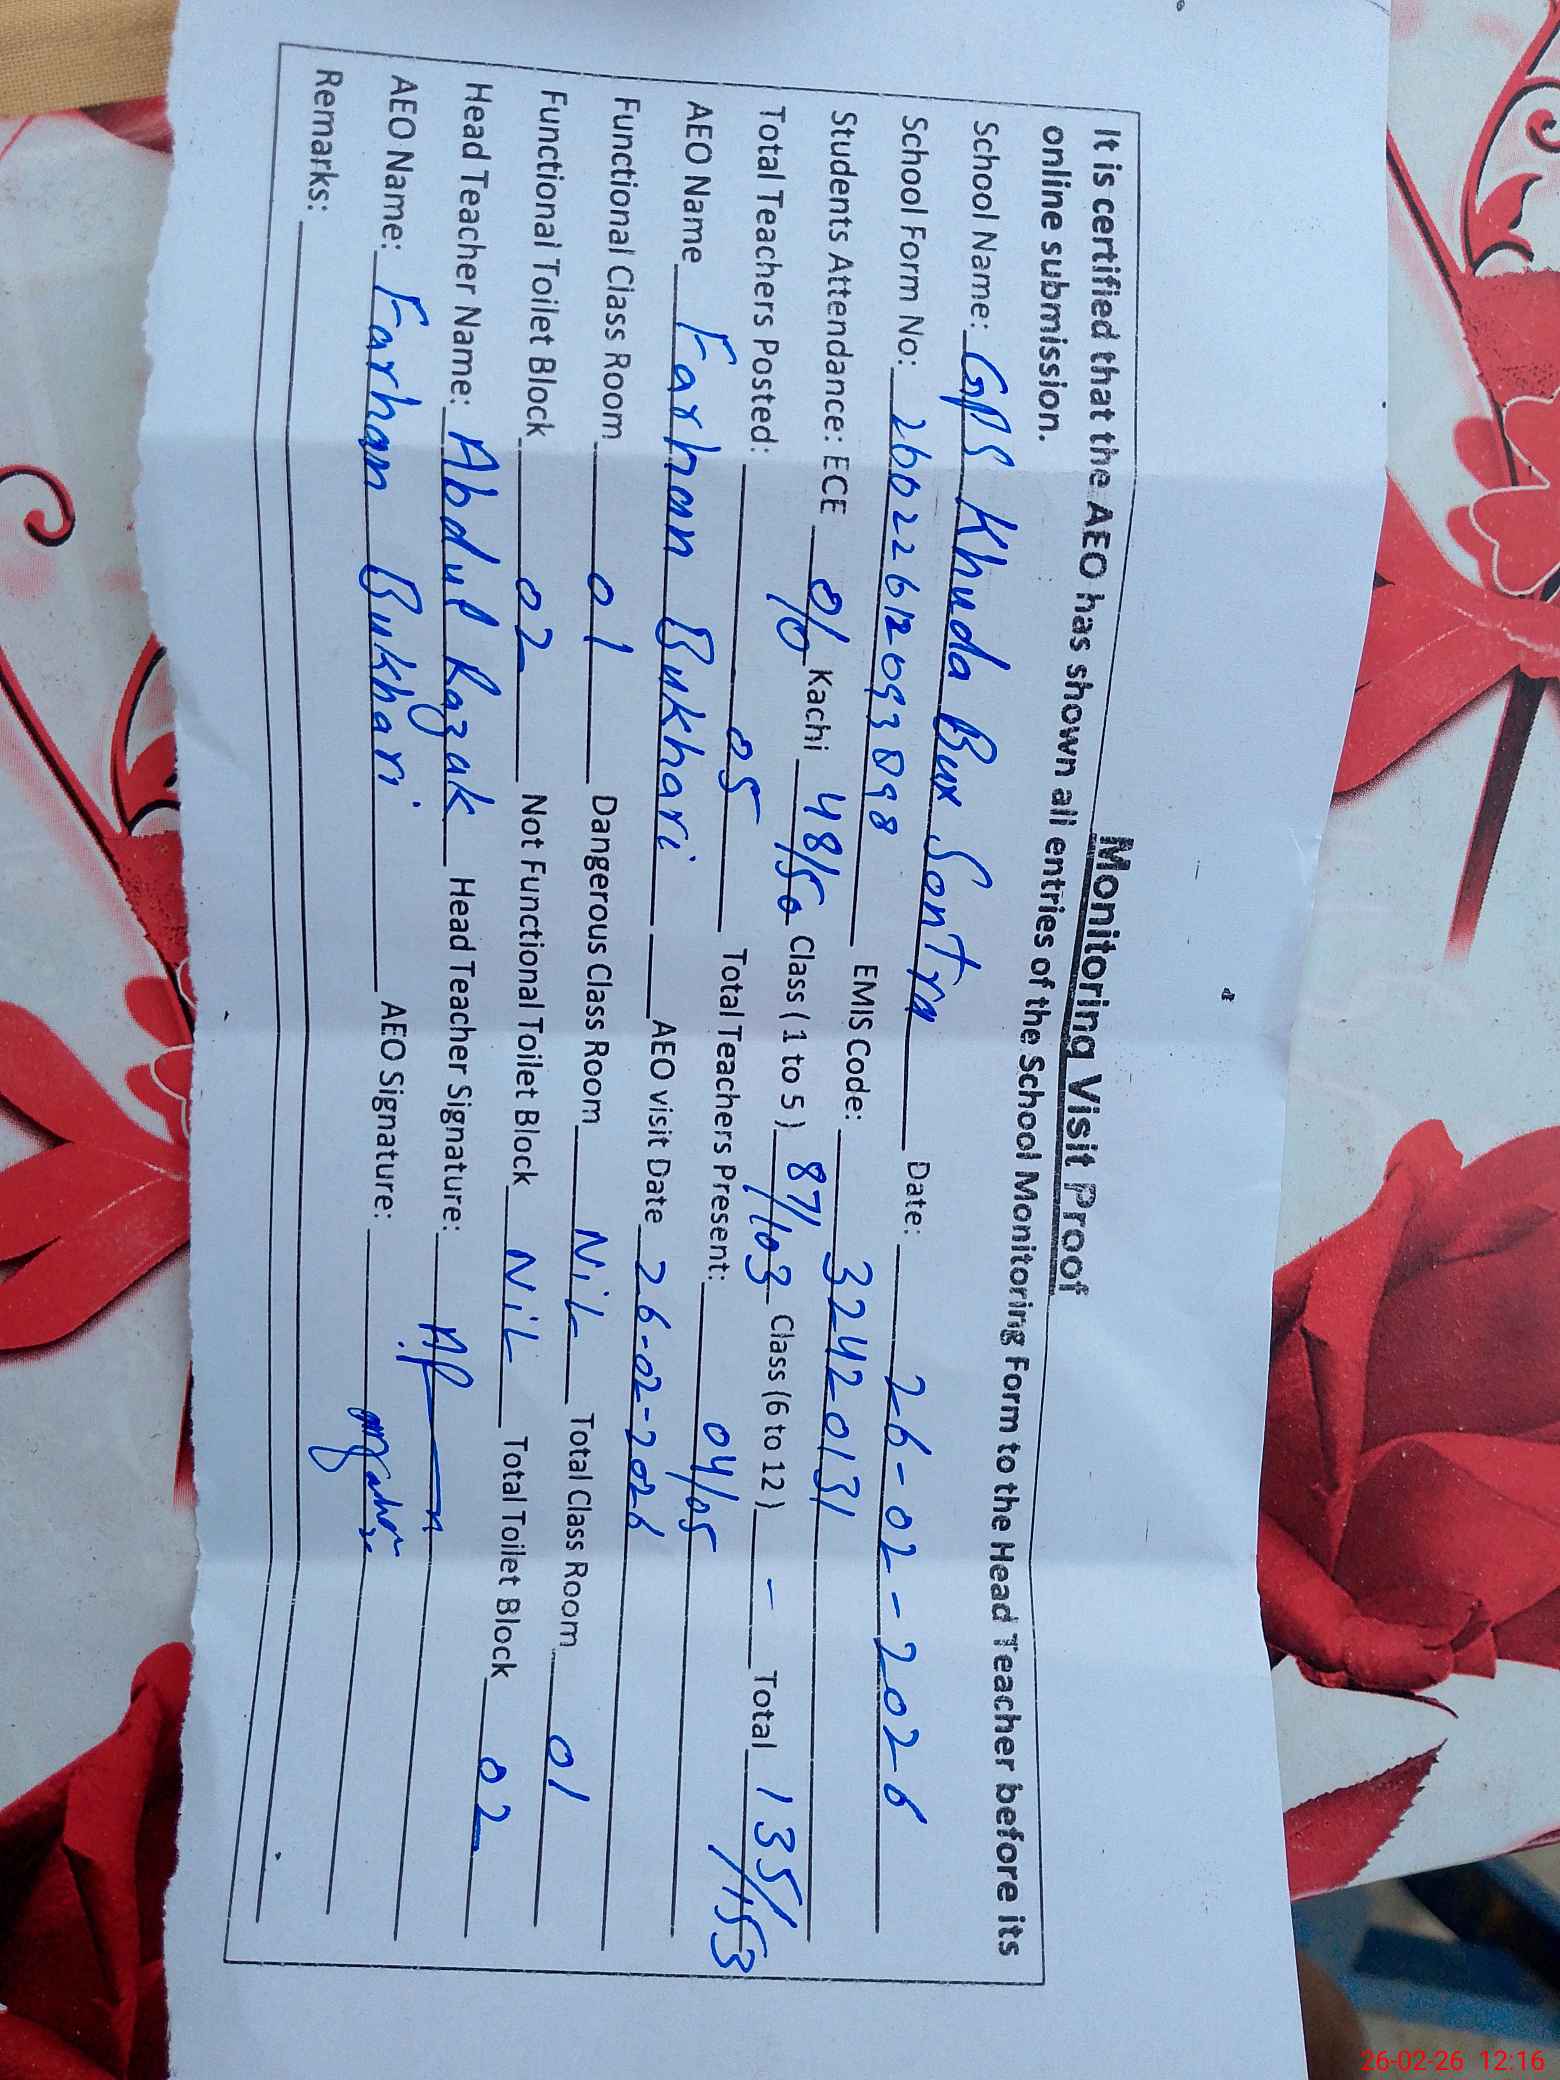 Monitoring Visit Proof
It is certified that the AEO has shown all entries of the School Monitoring Form to the Head Teacher before its
online submission.
School Name: GPS Khuda Bux Sontra Date: 26-02-2026
School Form No: EMIS Code: 32420131
Students Attendance: ECE 0/0 Kachi 48/50 Class ( 1 to 5 ) 87/103 Class (6 to 12 ) - Total 135/153
Total Teachers Posted: 05 Total Teachers Present: 04/05
AEO Name Farhan Bukhari AEO visit Date 26-02-2026
Functional Class Room 01 Dangerous Class Room NiL Total Class Room 01
Functional Toilet Block 02 Not Functional Toilet Block NiL Total Toilet Block 02
Head Teacher Name: Abdul Razak Head Teacher Signature:
AEO Name: Farhan Bukhari AEO Signature:
Remarks:
26-02-26 12:16